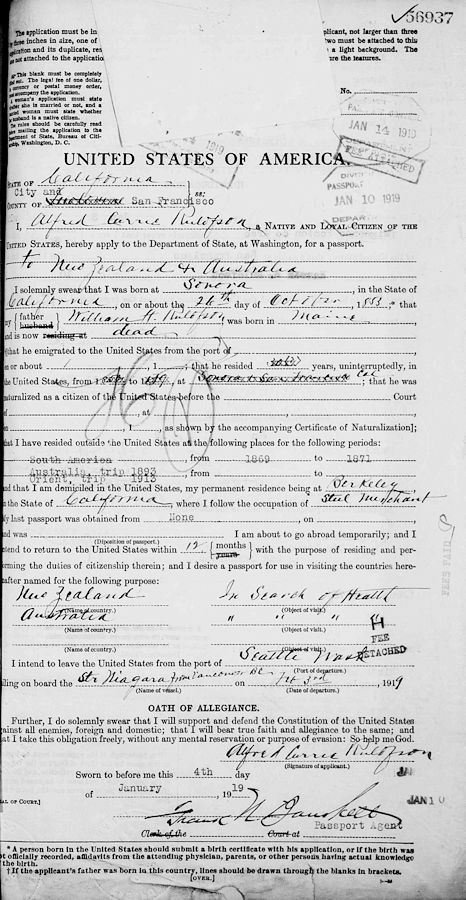 56937
The application must be in
three inches in size, one of
application and its duplicate, res
as not attached to the applicatio
plicant, not larger than three
wo must be attached to this
a light background. The
ure the features.
This blank must be completely
filled out. The legal fee of one dollar,
currency or postal money order,
must accompany the application.
A woman's application must state
whether she is married or not, and a
married woman must state whether
husband is a native citizen.
The rules should be carefully read
before mailing the application to the
Department of State, Bureau of Citi-
zenship, Washington, D. C.
No.
JAN 14 1919
FEE ATTACHED
PASSPORT
JAN 10 1919
DEPAR
UNITED STATES OF AMERICA.
STATE OF California
City and
COUNTY OF San Francisco ss:
I, Alfred Currie Rulofson, a NATIVE AND LOYAL CITIZEN OF THE
UNITED STATES, hereby apply to the Department of State, at Washington, for a passport.
to New Zealand & Australia
I solemnly swear that I was born at Sonora, in the State of
California, on or about the 26th day of October, 1853; * that
my {father husband} William H. Rulofson, was born in Maine
and is now residing at dead
that he emigrated to the United States from the port of
on or about 1, 1; that he resided years, uninterruptedly, in
the United States, from 1 to 1, at Sonora & San Francisco Cal; that he was
naturalized as a citizen of the United States before the Court
of, at,
on, 1, as shown by the accompanying Certificate of Naturalization];
that I have resided outside the United States at the following places for the following periods:
South America, from 1869 to 1871
Australia, trip 1893, from to
Orient, trip 1913
and that I am domiciled in the United States, my permanent residence being at Berkeley
in the State of California, where I follow the occupation of Steel Merchant
My last passport was obtained from None, on
and was (Disposition of passport.) I am about to go abroad temporarily; and I
intend to return to the United States within 12 {months years} with the purpose of residing and per-
forming the duties of citizenship therein; and I desire a passport for use in visiting the countries here-
inafter named for the following purpose:
New Zealand In Search of Health
(Name of country.) (Object of visit.)
Australia " " " "
(Name of country.) (Object of visit.)
(Name of country.) (Object of visit.)
FEE
ATTACHED
FEES PAID
I intend to leave the United States from the port of Seattle Wash
(Port of departure.)
sailing on board the Str Niagara from Vancouver BC on Feb 3rd, 1919
(Name of vessel.) (Date of departure.)
OATH OF ALLEGIANCE.
Further, I do solemnly swear that I will support and defend the Constitution of the United States
against all enemies, foreign and domestic; that I will bear true faith and allegiance to the same; and
that I take this obligation freely, without any mental reservation or purpose of evasion: So help me God.
Alfred Currie Rulofson
(Signature of applicant.)
Sworn to before me this 4th day
of January, 1919
JAN 10
[SEAL OF COURT.]
Clerk of the Court at Passport Agent
* A person born in the United States should submit a birth certificate with his application, or if the birth was
not officially recorded, affidavits from the attending physician, parents, or other persons having actual knowledge
of the birth.
† If the applicant's father was born in this country, lines should be drawn through the blanks in brackets.
[OVER.]